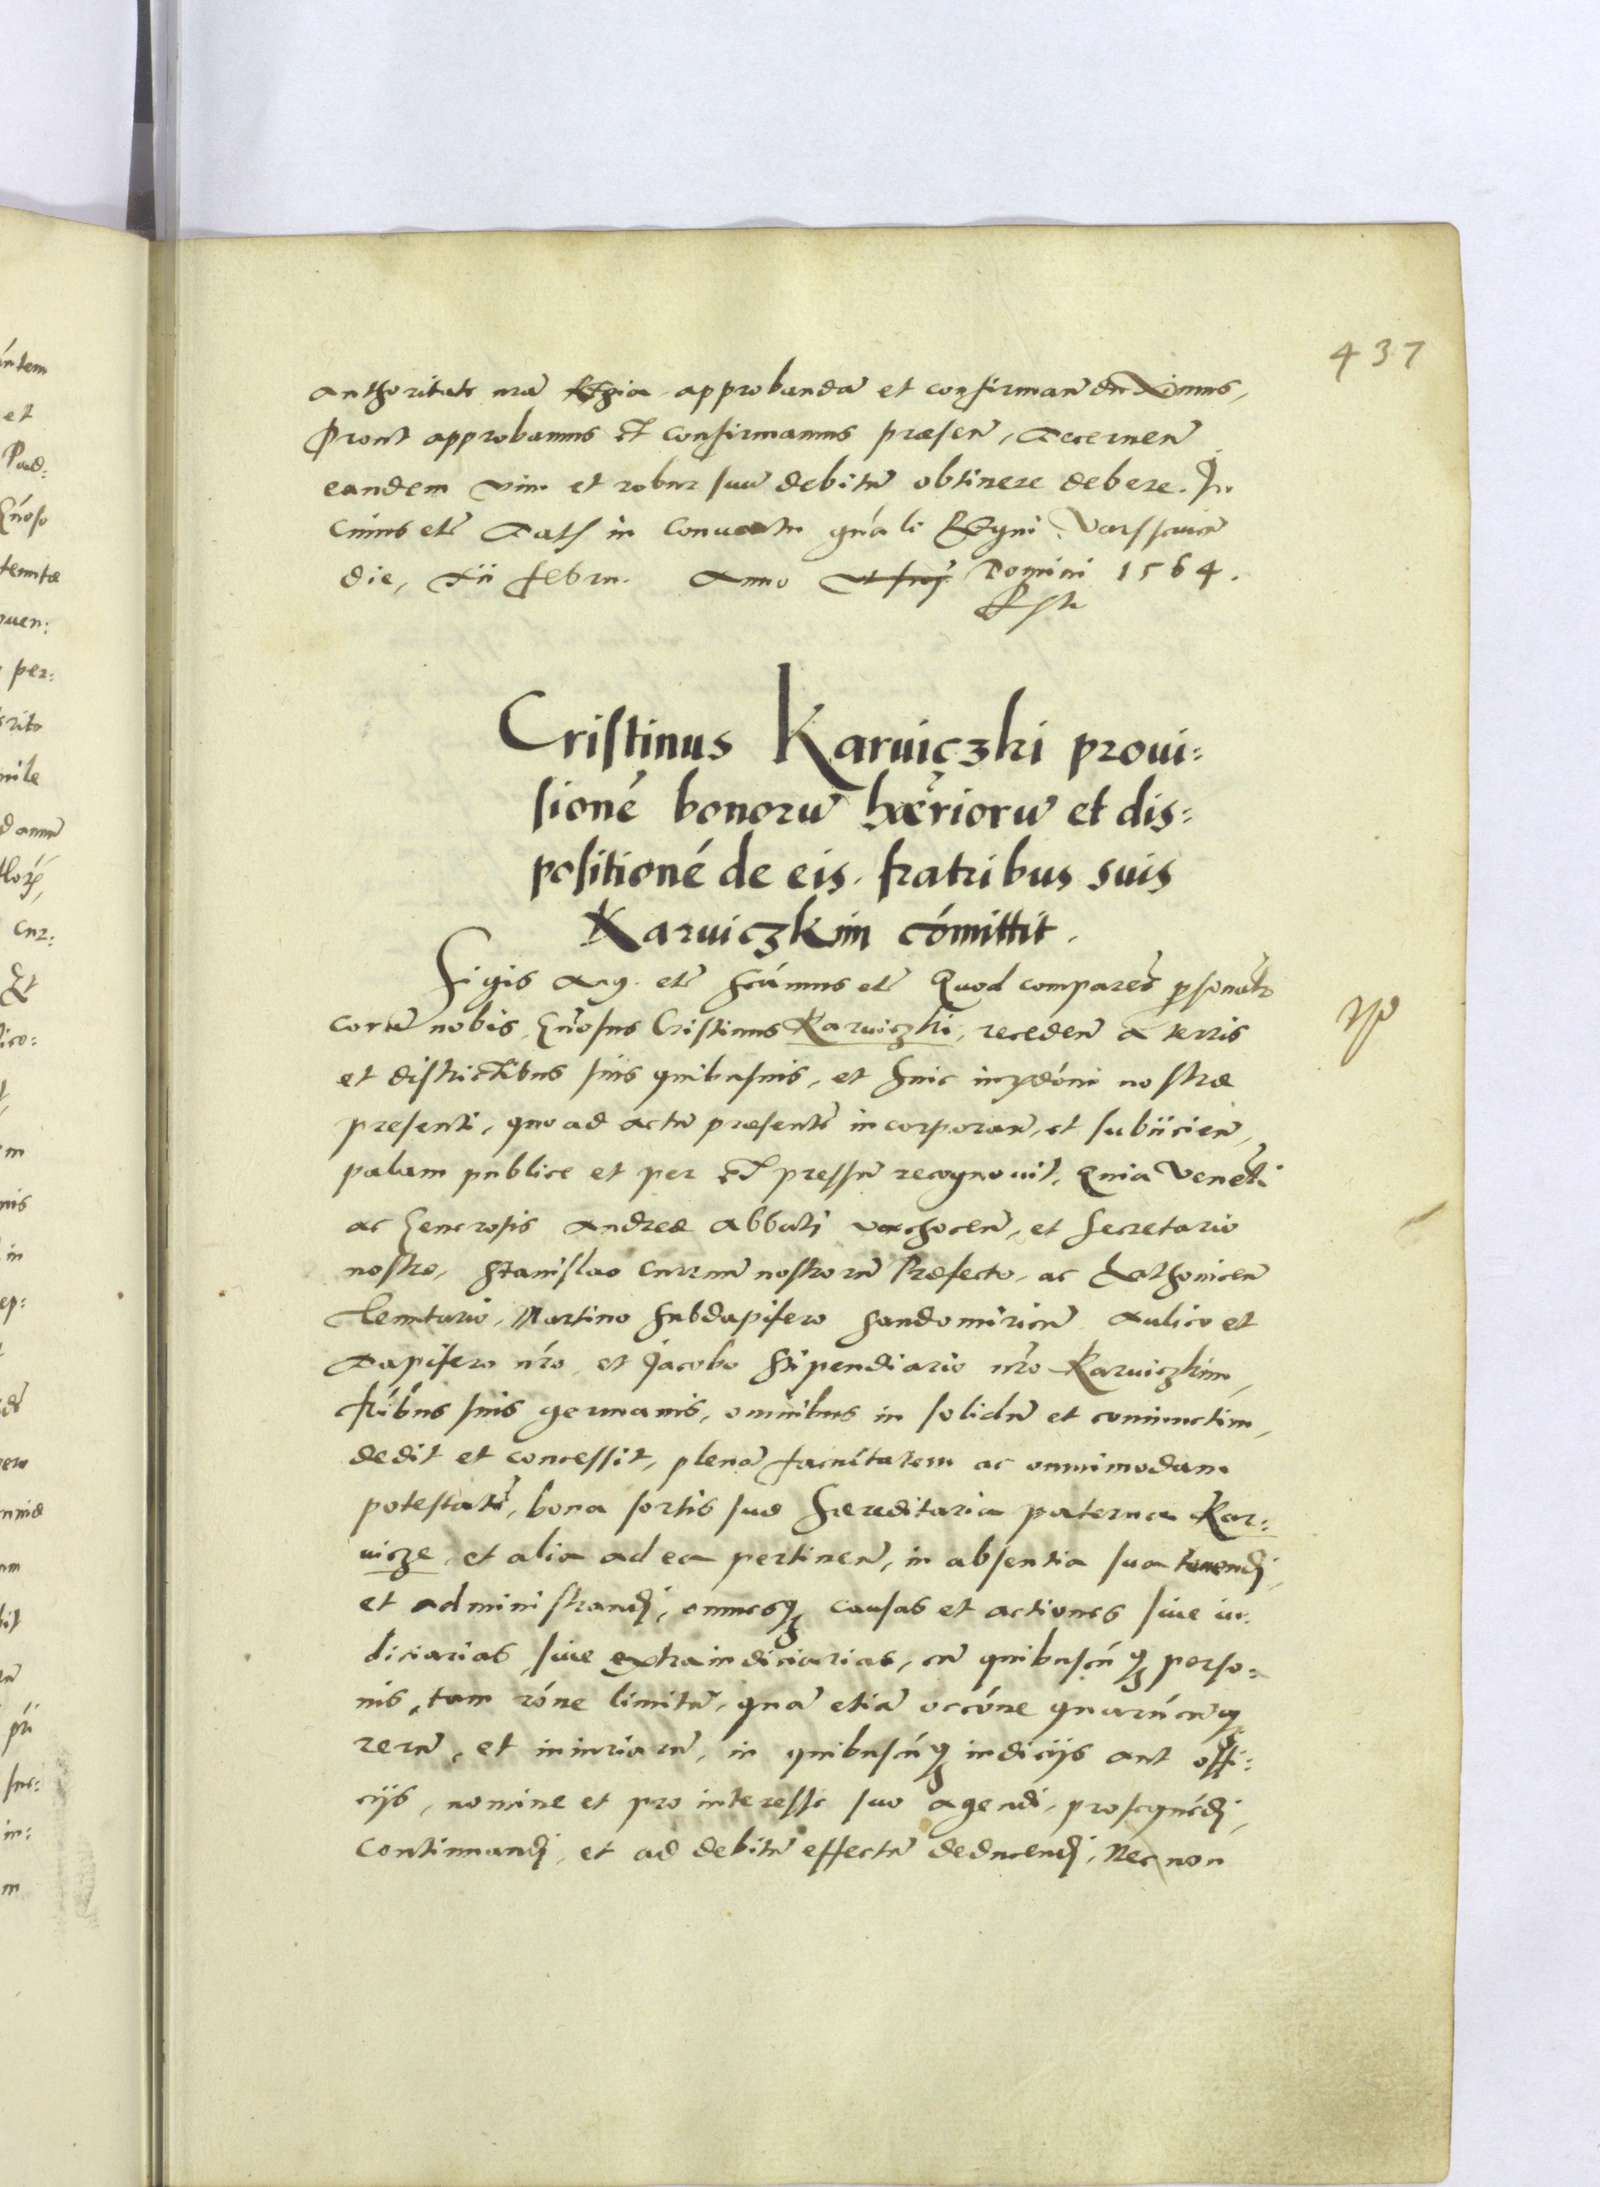 437
authoritate nrã Regia approbandã et confirmanđ duximus,
Prout approbamus et confirmamus præsen̄, decernen̄
eandem vim et robur suũ debitũ obtinere debere. In
cuius etc̃ Dat̃ in Conuentu gñali Regni Varssauien̄
die, xii febru. Anno Domini 1564.
Cristinus Karuiczki proui:
sioné bonorũ hæŕriorũ et dis:
positioné de eis fratribus suis
Karuiczkim cómittit.
Sigis Aug. etc̃ Scímus etc̃ Quod comparēs p̱sonalr̃
corã nobis, Gñosus Cristinus Karuiczki, receden̄ a terris
et districtibus suis quibusuis, et huic inẏdóni nostræ
presenti, quo ad actũ præsentẽ incorporan̄, et subiicien̄,
palam publice et per expressũ recognouit, Quia Venerli
ac Generosis Andreæ Abbati vachocen̄, et Secretario
nostro, Stanislao Curruũ nostrorũ Præfecto, ac
tenutario, Martino Subdapifero Sandomirien̄ Aulico et
Dapifero nr̃o, et Jacobo Stipendiario nr̃o Karuiczkim,
fŕibus suis germanis, omnibus in solidũ et coniunctim,
dedit et concessit, plenã facultatem ac omnimodam
potestatẽ, bona sortis suæ hæreditaria paterna Kar:
uicze, et alia ad ea pertinen̄, in absentia sua tenendi,
et administrandi, omnesq̨ causas et actiones siue iu:
diciarias siue extraiudiciarias, cũ quibuscũq̨ perso:
nis, tam róne limitũ, quã etiã occóne quarũcũq̨
rerũ, et iniuriarũ, in quibuscũq̨ iudicijs aut offi:
cijs, nomine et pro interesse suo agendi, prosequédi,
Continuandi, et ad debitũ effectũ deducendi, Nec non